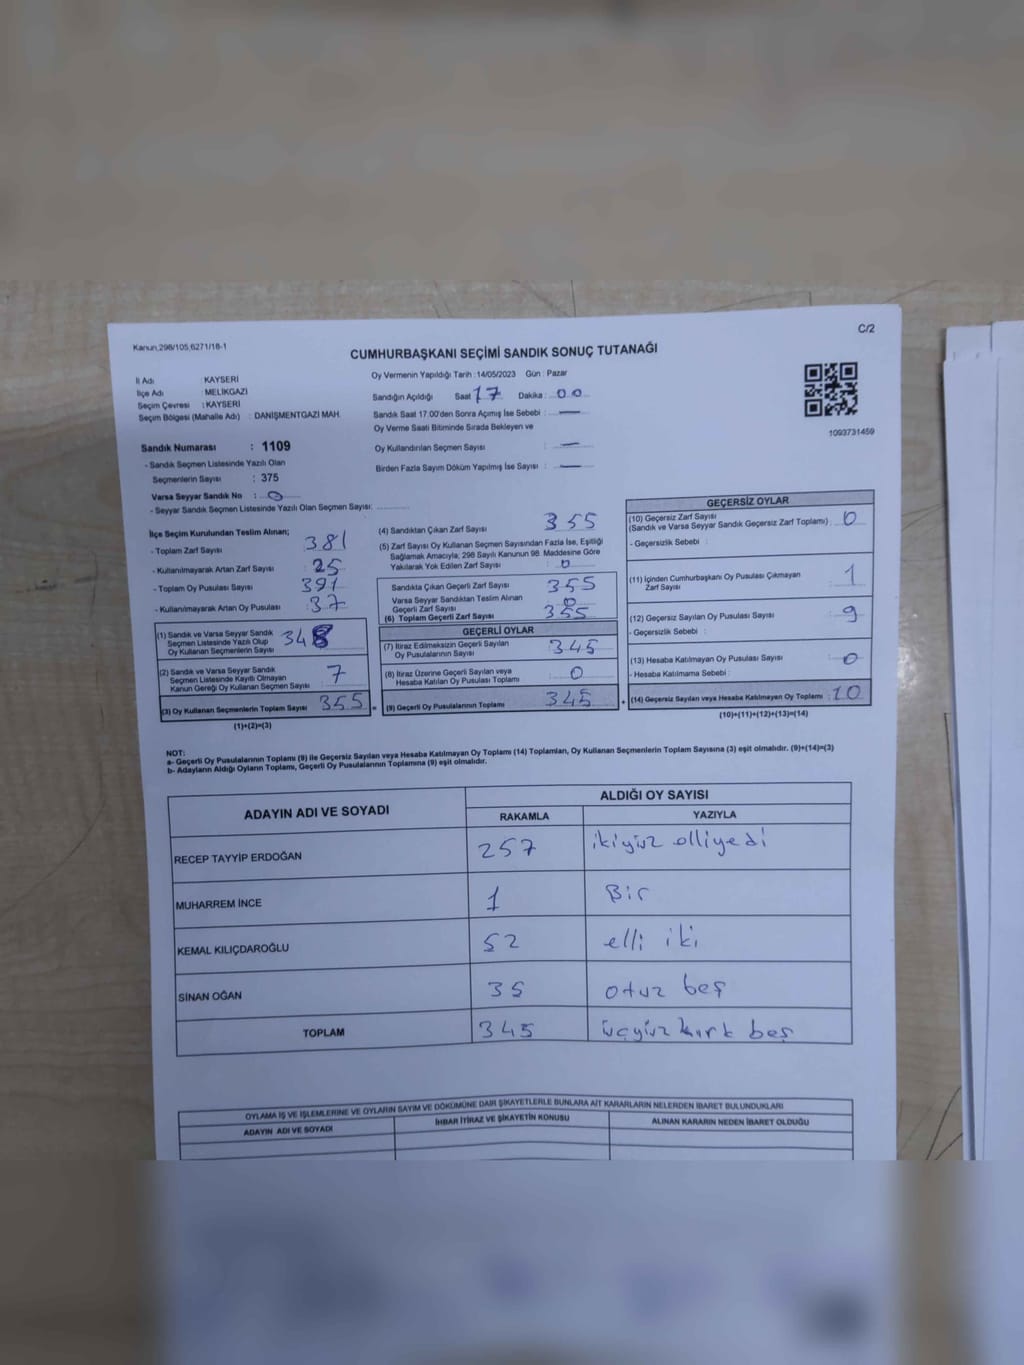 C/2
Kanun,298/105,6271/18-1
CUMHURBAŞKANI SEÇİMİ SANDIK SONUÇ TUTANAĞI
İl Adı : KAYSERİ
İlçe Adı : MELİKGAZİ
Seçim Çevresi : KAYSERİ
Seçim Bölgesi (Mahalle Adı) : DANİŞMENTGAZİ MAH.
Sandık Numarası : 1109
- Sandık Seçmen Listesinde Yazılı Olan
Seçmenlerin Sayısı : 375
Varsa Seyyar Sandık No : 0
- Seyyar Sandık Seçmen Listesinde Yazılı Olan Seçmen Sayısı:
Oy Vermenin Yapıldığı Tarih :14/05/2023 Gün : Pazar
Sandığın Açıldığı Saat 17 Dakika : 00
Sandık Saat 17.00'den Sonra Açımış İse Sebebi : —
Oy Verme Saati Bitiminde Sırada Bekleyen ve
Oy Kullandırılan Seçmen Sayısı : —
Birden Fazla Sayım Döküm Yapılmış İse Sayısı : —
1093731459
İlçe Seçim Kurulundan Teslim Alınan;
- Toplam Zarf Sayısı 381
- Kullanılmayarak Artan Zarf Sayısı 25
- Toplam Oy Pusulası Sayısı 391
- Kullanılmayarak Artan Oy Pusulası 37
(1) Sandık ve Varsa Seyyar Sandık
Seçmen Listesinde Yazılı Olup
Oy Kullanan Seçmenlerin Sayısı 348
(2) Sandık ve Varsa Seyyar Sandık
Seçmen Listesinde Kayıtlı Olmayan
Kanun Gereği Oy Kullanan Seçmen Sayısı 7
(3) Oy Kullanan Seçmenlerin Toplam Sayısı 355 =
(1)+(2)=(3)
(4) Sandıktan Çıkan Zarf Sayısı 355
(5) Zarf Sayısı Oy Kullanan Seçmen Sayısından Fazla İse, Eşitliği
Sağlamak Amacıyla, 298 Sayılı Kanunun 98. Maddesine Göre
Yakılarak Yok Edilen Zarf Sayısı : 0
Sandıkta Çıkan Geçerli Zarf Sayısı 355
Varsa Seyyar Sandıktan Teslim Alınan
Geçerli Zarf Sayısı 0
(6) Toplam Geçerli Zarf Sayısı 355
GEÇERLİ OYLAR
(7) İtiraz Edilmeksizin Geçerli Sayılan
Oy Pusulalarının Sayısı 345
(8) İtiraz Üzerine Geçerli Sayılan veya
Hesaba Katılan Oy Pusulası Toplamı 0
(9) Geçerli Oy Pusulalarının Toplamı 345 +
GEÇERSİZ OYLAR
(10) Geçersiz Zarf Sayısı
(Sandık ve Varsa Seyyar Sandık Geçersiz Zarf Toplamı) 0
- Geçersizlik Sebebi :
(11) İçinden Cumhurbaşkanı Oy Pusulası Çıkmayan
Zarf Sayısı 1
(12) Geçersiz Sayılan Oy Pusulası Sayısı 9
- Geçersizlik Sebebi :
(13) Hesaba Katılmayan Oy Pusulası Sayısı 0
- Hesaba Katılmama Sebebi :
(14) Geçersiz Sayılan veya Hesaba Katılmayan Oy Toplamı 10
(10)+(11)+(12)+(13)=(14)
NOT:
a- Geçerli Oy Pusulalarının Toplamı (9) ile Geçersiz Sayılan veya Hesaba Katılmayan Oy Toplamı (14) Toplamları, Oy Kullanan Seçmenlerin Toplam Sayısına (3) eşit olmalıdır. (9)+(14)=(3)
b- Adayların Aldığı Oyların Toplamı, Geçerli Oy Pusulalarının Toplamına (9) eşit olmalıdır.
ADAYIN ADI VE SOYADI ALDIĞI OY SAYISI
RAKAMLA YAZIYLA
RECEP TAYYİP ERDOĞAN 257 ikiyüz elliyedi
MUHARREM İNCE 1 Bir
KEMAL KILIÇDAROĞLU 52 elli iki
SİNAN OĞAN 35 otuz beş
TOPLAM 345 üçyüz kırk beş
OYLAMA İŞ VE İŞLEMLERİNE VE OYLARIN SAYIM VE DÖKÜMÜNE DAİR ŞİKAYETLERLE BUNLARA AİT KARARLARIN NELERDEN İBARET BULUNDUKLARI
ADAYIN ADI VE SOYADI İHBAR İTİRAZ VE ŞİKAYETİN KONUSU ALINAN KARARIN NEDEN İBARET OLDUĞU